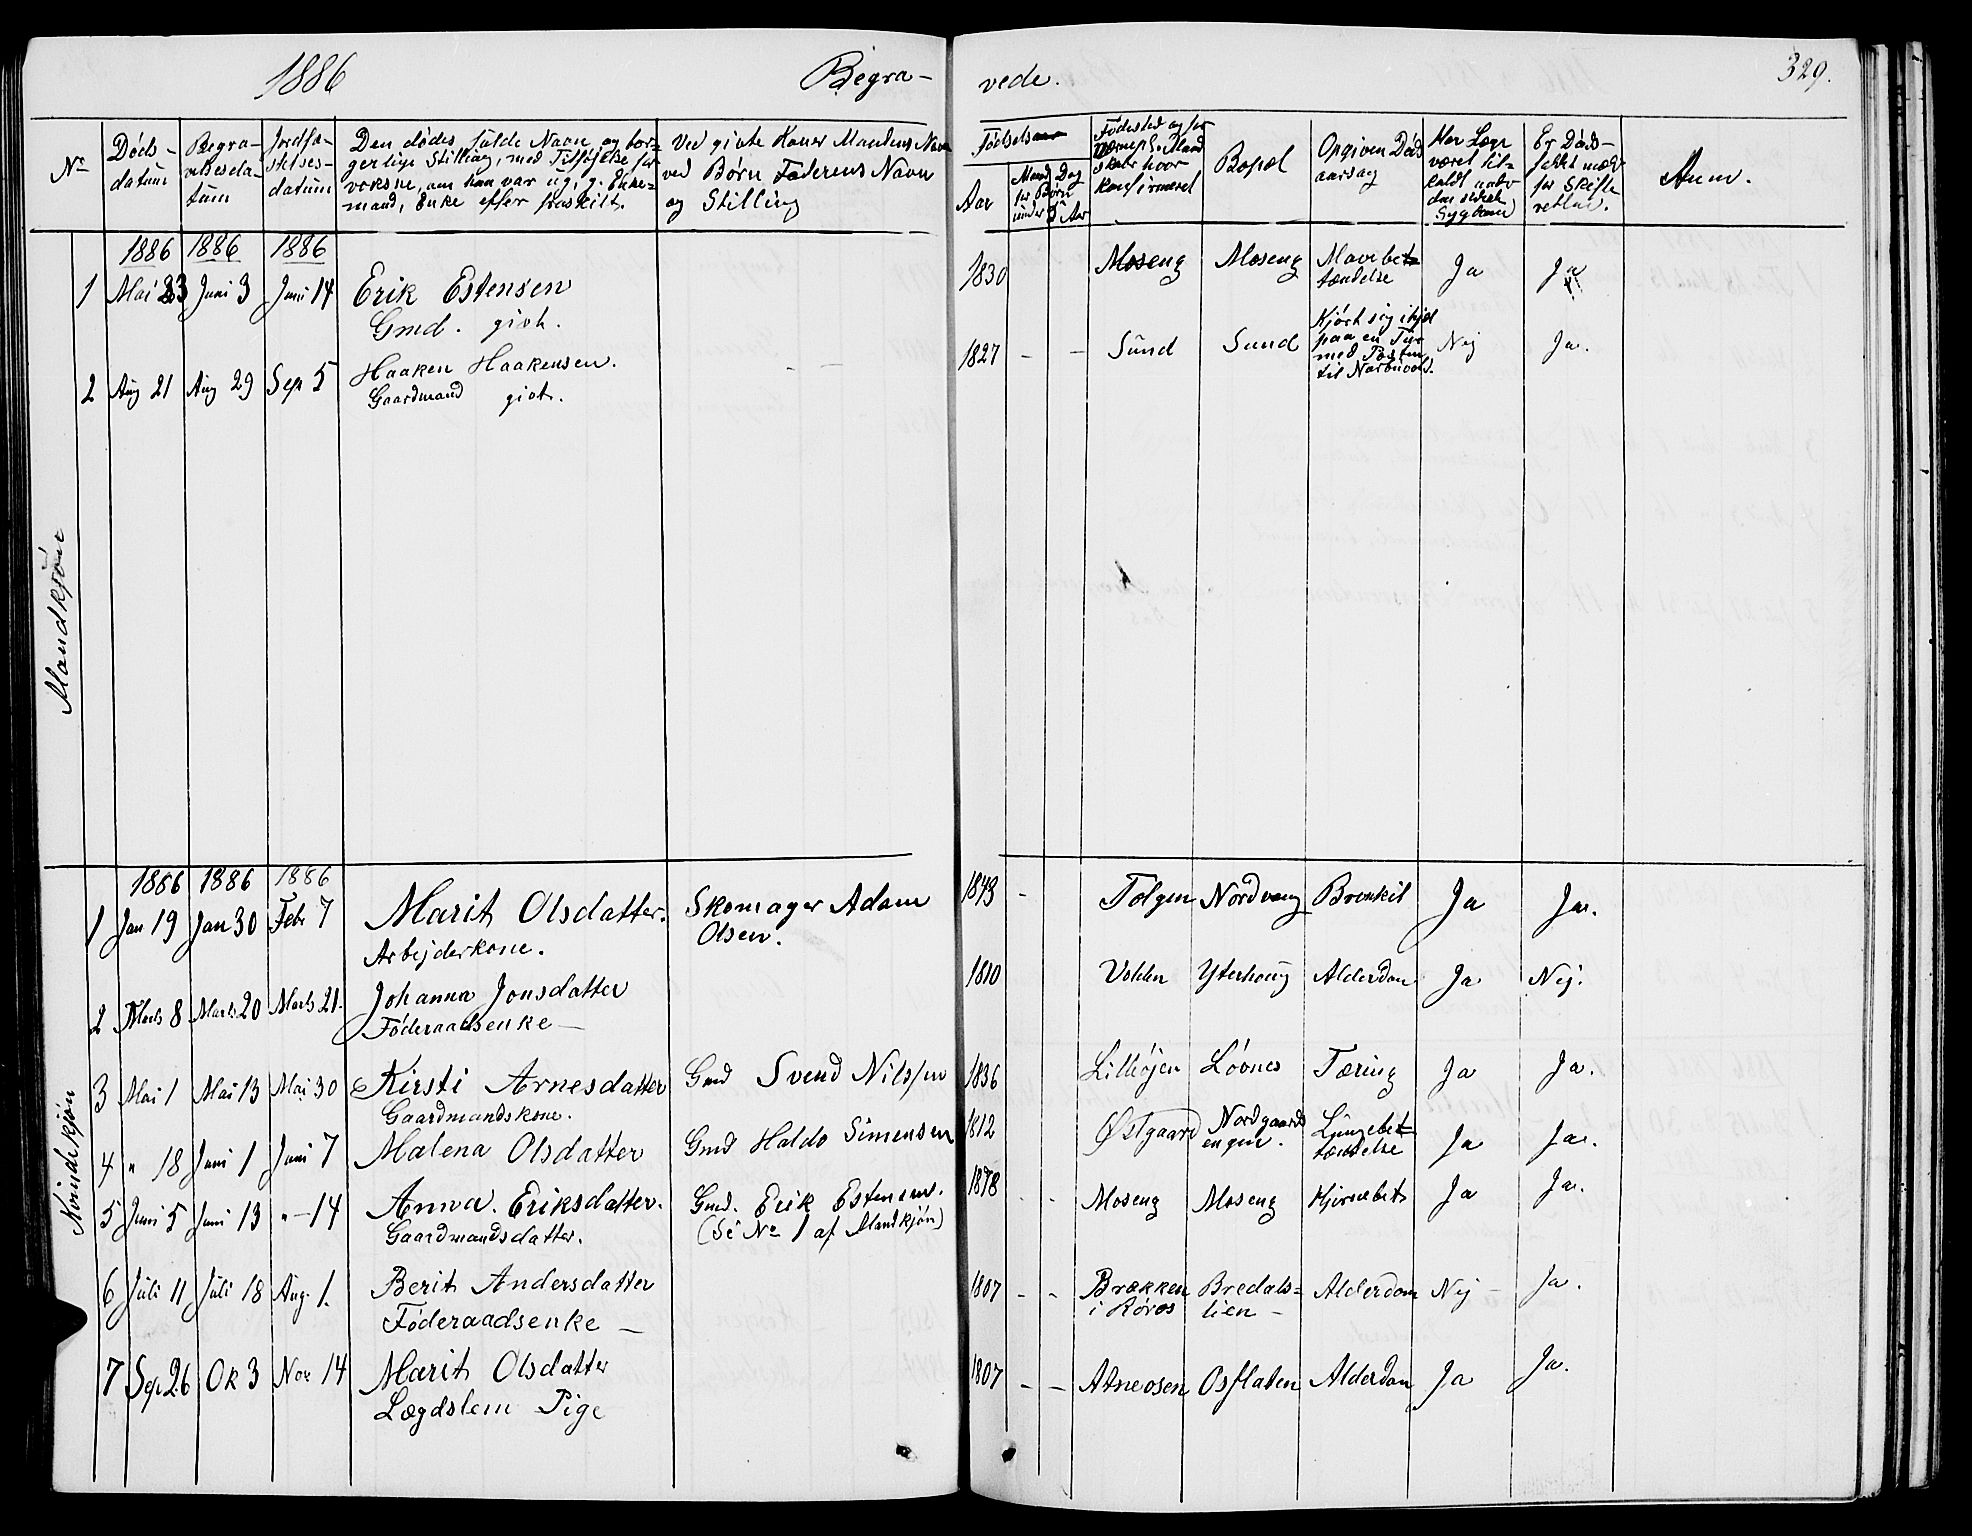 1886 Begra-
vede. 329.
No
Døds-
datum
Begra-
velsesda-
tum
Jordfæ-
stelses-
datum
Den dødes fulde Navn og bor-
gerlige Stilling, med Tilføjelse for
voksne, om han var ug, g. Enke-
mand, Enke eller fraskilt.
Ved givte Koner Mandens Navn
ved Børn Faderens Navn
og Stilling
Fødselsaar
Aar
Maand Dag
for Børn
under 2 Aar
Fødested og for
skabr hvor
konfirmeret
Bopæl
Opgiven Døds
aarsag
Har Læge
været til-
kaldt
Er Døds-
faldt meldt
for Skifte
retten.
Anm.
Mandkjøn
1886 1886 1886
1 Mai 23 Juni 3 Juni 14 Erik Estensen
Gmd. givt.
1830 Moseng Moseng Mavebe
tændelse Ja Ja
2 Aug 21 Aug 29 Sep 5 Haaken Haakensen.
Gaardmand givt.
- -
1827 - - Sund Sund Kjørt sig ihjel
paa en Tur
med Posten
til Narbuvold. Nej Ja.
Kvindekjøn
1886 1886 1886
1 Jan 19 Jan 30 Febr 7 Marit Olsdatter.
Arbejderkone.
Skomager Adam
Olsen.
1843 - Tolgen Nordvang Brenkit Ja Ja.
2 Marts 8 Marts 20 Marts 21. Johanna Jonsdatter
Føderaadsenke -
1810 Volden Yterhaug Alderdom Ja Nej.
3 Mai 1 Mai 13 Mai 30 Kirsti Arnesdatter
Gaardmandskone.
Gmd Svend Nilssen
1836 Lilleøjen Løvnes Tæring Ja Ja.
4 " 18 Juni 1 Juni 7 Malena Olsdatter
Gmd Haldo Simensen
1812 Østgaard Nordgaards
engen. Lungebe
tændelse Ja Ja.
5 Juni 5 Juni 13 " - 14 Anna. Eriksdatter.
Gaardmandsdatter.
Gmd. Erik Estensen.
(Se No 1 af Mandkjøn)
1878 - - Moseng Moseng Hjernebet Ja Ja.
6 Juli 11 Juli 18 Aug. 1. Berit Andersdatter
Føderaadsenke -
1807 - - Brækken
i Røros Bredals=
lien - Alderdom Nej - Ja.
7 Sep 26 Ok 3 Nov 14 Marit Olsdatter
Lægdslem Pige
1807 - - Atneosen Osflaten Alderdom Ja Ja.